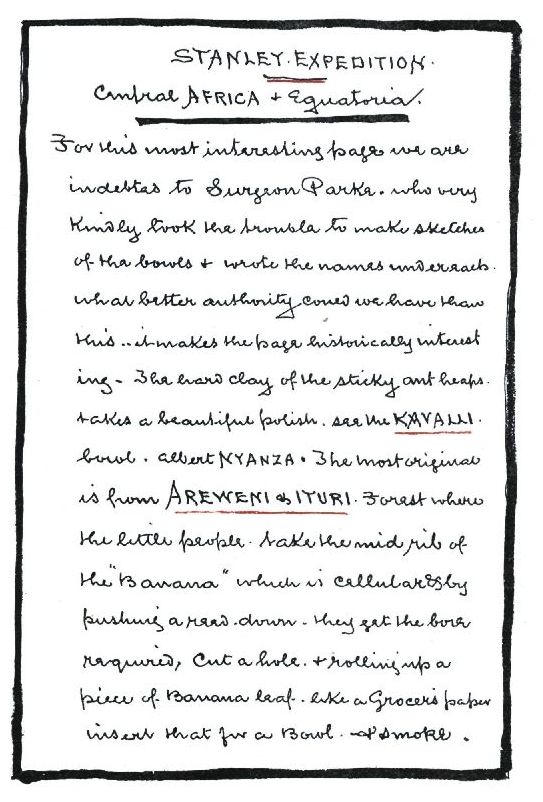 STANLEY. EXPEDITION.
Central AFRICA + Equatoria.
For this most interesting page we are
indebted to Surgeon Parke. who very
kindly took the trouble to make sketches
of the bowls + wrote the names under each.
what better authority could we have than
this .. it makes the page historically interest
ing - The hard clay of the sticky ant heaps.
takes a beautiful polish. see the KAVALLI.
bowl. albert NYANZA. The most original
is from AREWENI & ITURI. Forest where
the little people. take the mid rib of
the "Banana" which is cellular & by
pushing a reed. down - they get the bore
required, Cut a hole. + rolling up a
piece of Banana leaf. like a Grocer's paper
insert that for a Bowl. & smoke.